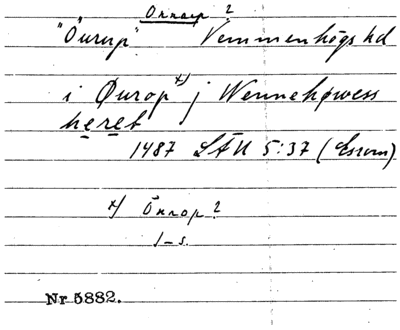 Önnarp?
"Öurup" Vemmenhögs hd
i Øurop x) j Wennehøwess
heret
1487 LÄU 5:37 (Esrom)
x) Önrop?
J-s.
Nr 5882.